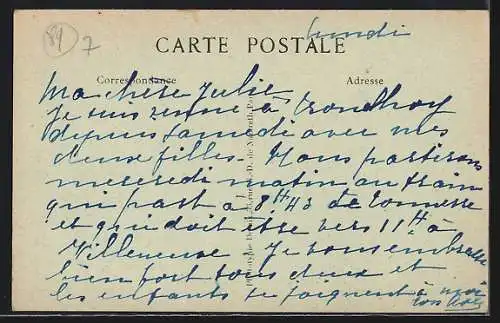 89
7
lundi
CARTE POSTALE
Correspondance
Adresse
Ma chère Julie
Je suis venue à
depuis samedi avec mes
deux filles. Nous partirons
mercredi matin au train
qui part à 8H43 de Tonnerre
et qui doit être vers 11H à
Villeneuve Je vous embrasse
bien fort tous deux et
les enfants se joignent à moi